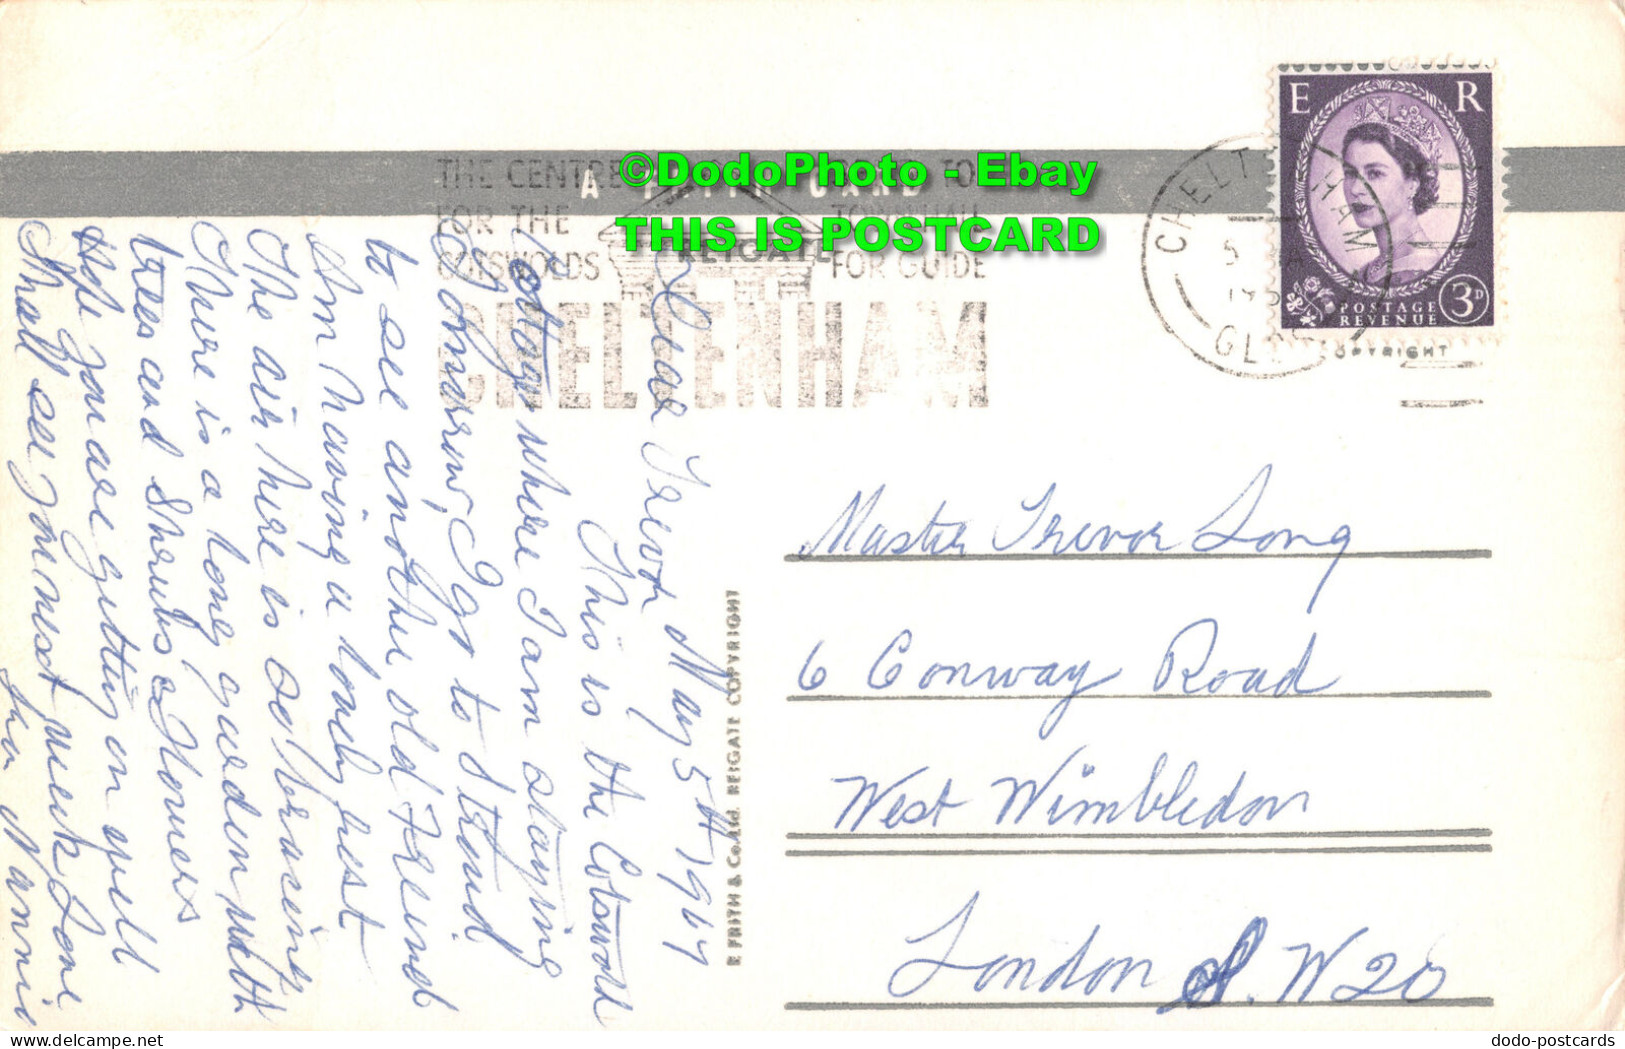 THE CENTRE
FOR THE
COTSWOLDS
TO
TOWN HALL
FOR GUIDE
CHELTENHAM
A FRITH CARD
REIGATE
©DodoPhoto - Ebay
THIS IS POSTCARD
CHELTENHAM
5
GLOS
E R
POSTAGE
REVENUE
3D
COPYRIGHT
May 5th 1967
Dear Trevor
This is the Cotswold
Cottage where I am staying
Tomorrow I go to Stroud
to see another old Friend
Am having a lovely rest
The air here is so bracing
There is a long garden with
trees and Shrubs & Flowers
Hope you are getting on well
Shall see you next week Love
from Nannie
F FRITH & Co. Ltd. REIGATE COPYRIGHT
Master Trevor Long
6 Conway Road
West Wimbledon
London S.W20
dodo-postcards